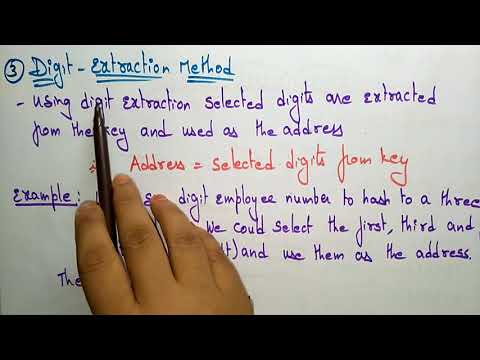 ③ Digit - Extraction Method
- Using digit Extraction selected digits are extracted
from the key and used as the address
Address = selected digits from key
Example : digit employee number to hash to a three
we could select the first, third and
and use them as the address.
The